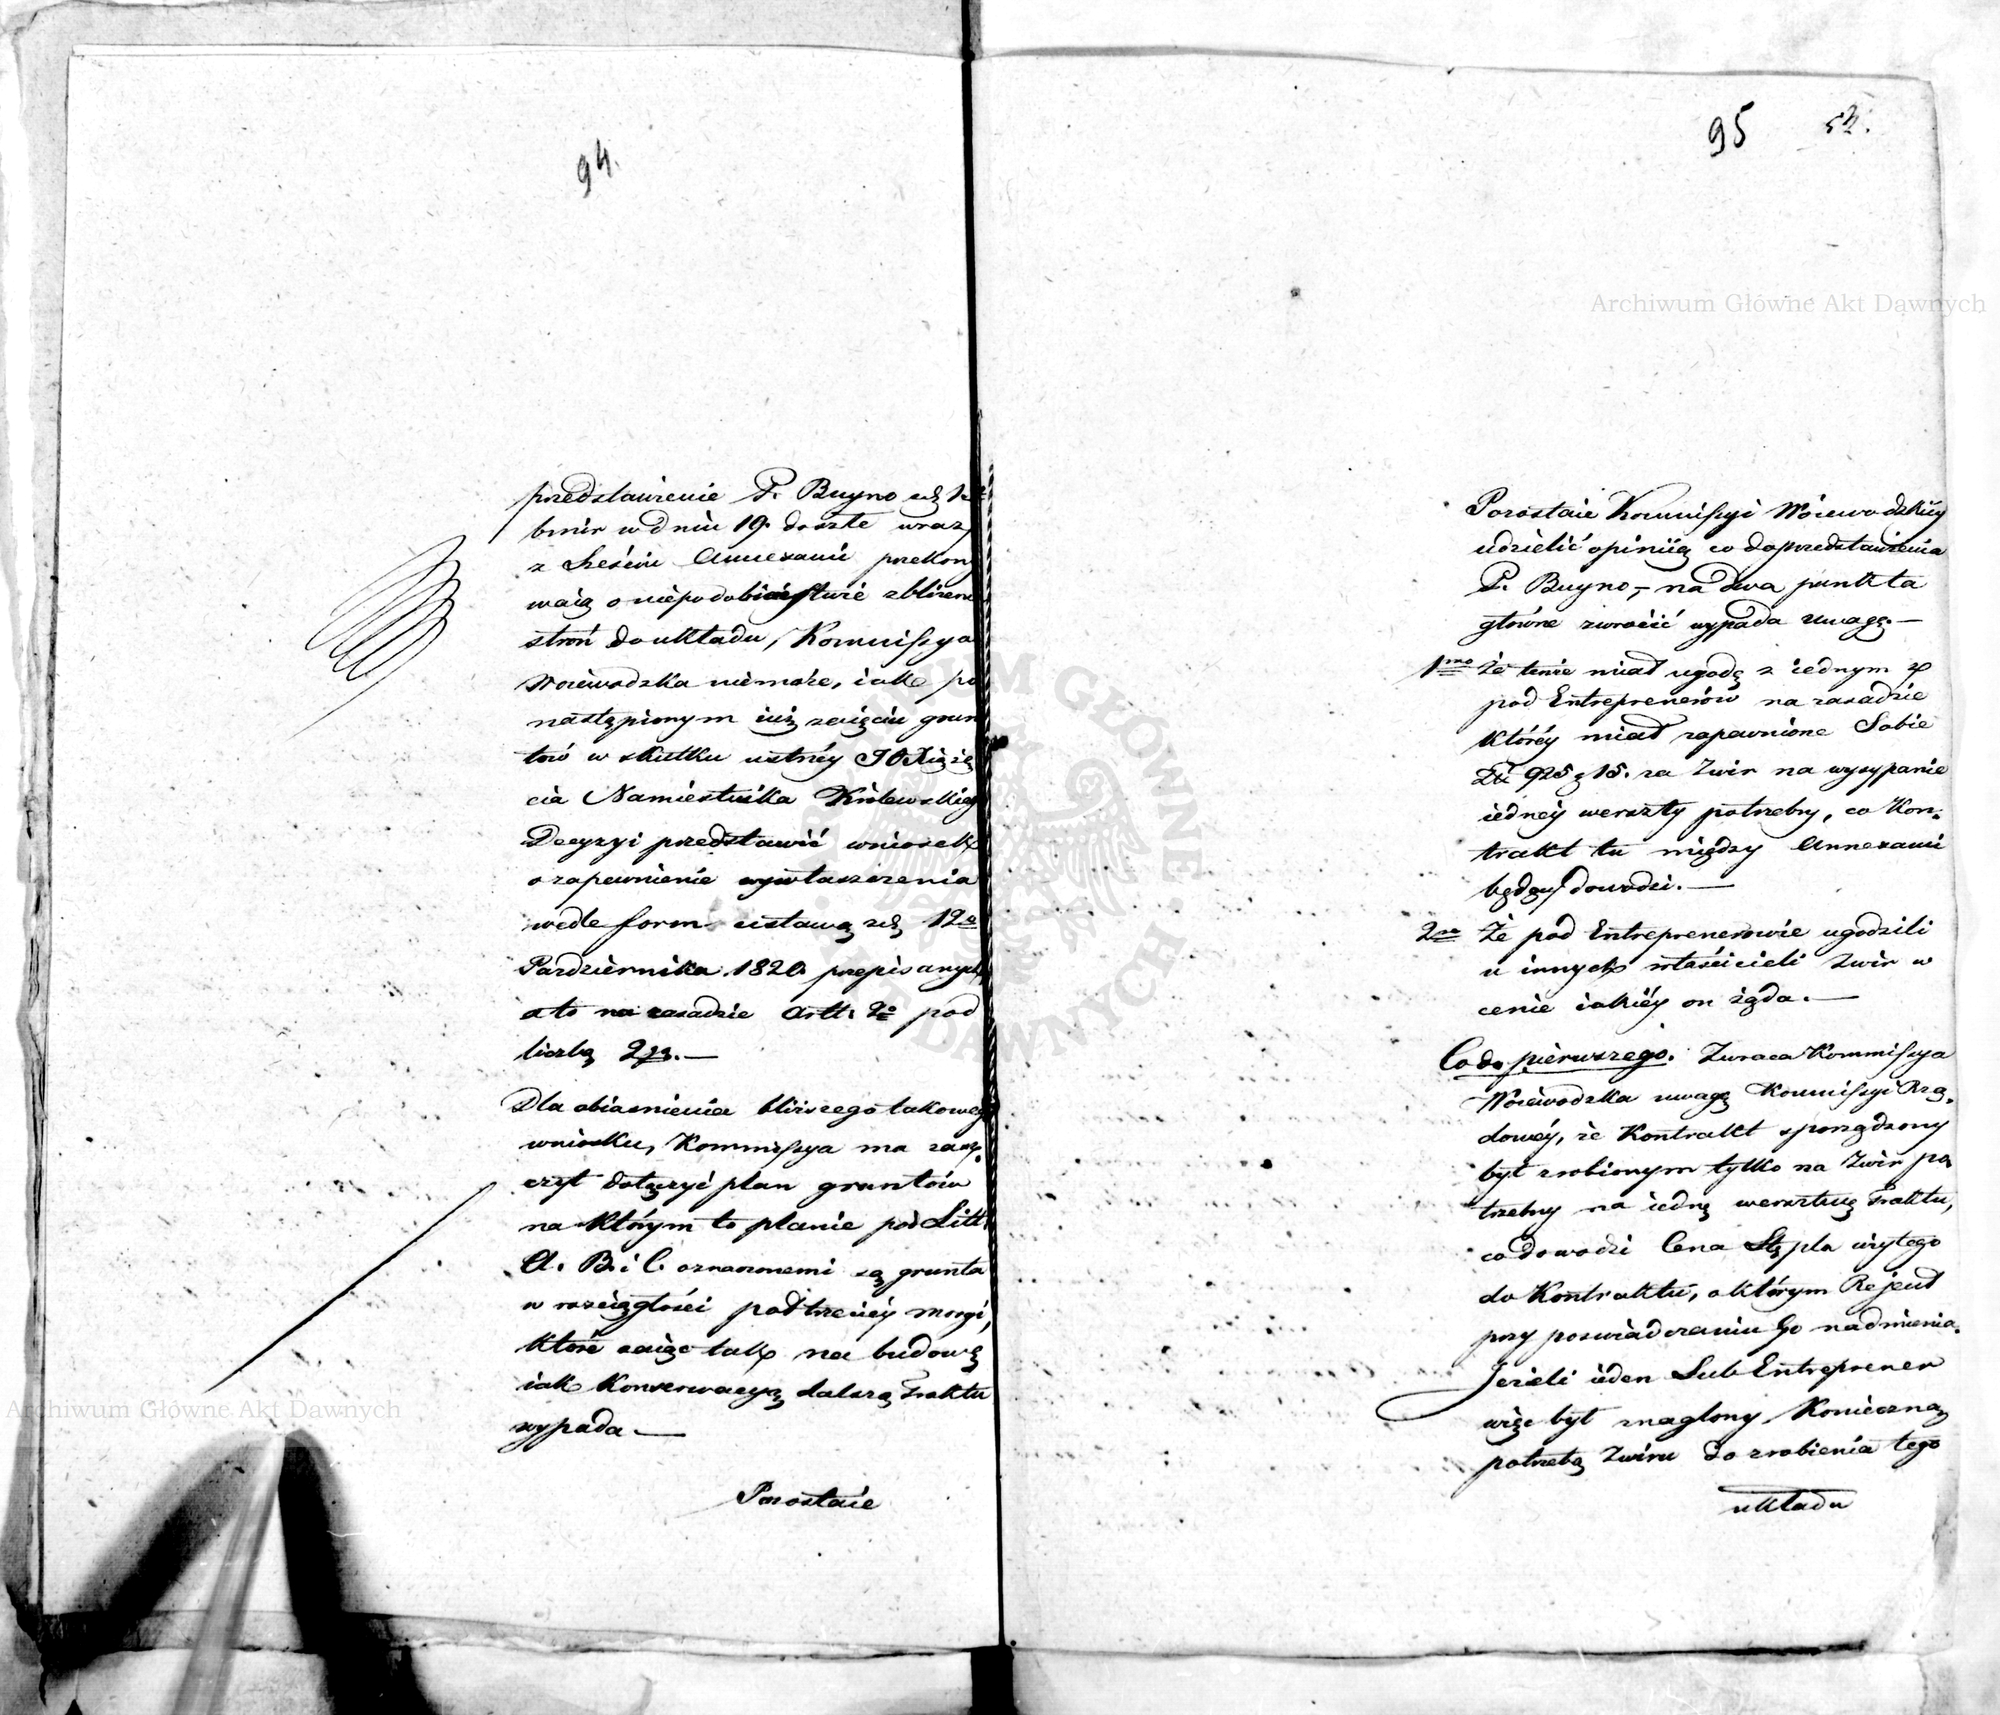 94.
przedstawienie P. Buyno
bmir w dniu 19. doszłe wraz
z sześciu Annexami przekony
waią o niepodobieństwie zbliżeni
stron do układu, Kommissya
Woiewodzka niemoże, iak po
nastąpionym iuż zaięciu grun
tów w skutku ustnéy JO Xiążę
cia Namiestnika Królewskiego
Decyzyi przedstawić wniosek
o zapewnienie wywłaszczenia
wedle form ustawą z d. 12go
Października 1820. przepisanych,
a to na zasadzie Artt. 2o pod
liczbą 2gą.—
Dla obiasnienia bliższego takowego
wniosku, Kommissya ma zasz-
czyt dołączyć plan gruntów
na którym to planie pod Litt.
A. B. i C. oznaczonemi są grunta
w rozciągłości pół trzeciéy morgi,
które zaiąć tak na budowę
iak Konserwacyą dalszą Traktu
wypada.—
Pozostaie
95 52.
Archiwum Główne Akt Dawnych
Pozostaie Kommissyi Woiewodzkiéy
udzielić opiniią co do przedstawienia
P. Buyno,— na dwa punkta
główne zwrócić wypada uwagę.—
1mo że tenże miał ugodę z iednym z
pod Entreprenerów na zasadzie
któréy miał zapewnione Sobie
Zł 925 g 15. za Zwir na wysypanie
iednéy werszty potrzebny, co Kon-
trakt tu między Annexami
będący dowodzi.—
2do Że pod Entreprenerowie ugodzili
u innych właścicieli Zwir w
cenie iakiéy on żąda.—
Co do pierwszego. Zwraca Kommissya
Woiewodzka uwagę Kommissyi Rzą-
dowéy, że Kontrakt sporządzony
był zrobionym tylko na Zwir po
trzebny na iedną wersztwę Traktu,
co dowodzi Cena Stępla użytego
do Kontraktu, o którym Rejent
przy poswiadczeniu Go nadmienia.
Jeżeli ieden Sub Entreprener
więc był znaglony Konieczną
potrzebą Zwiru do zrobienia tego
układu
Archiwum Główne Akt Dawnych